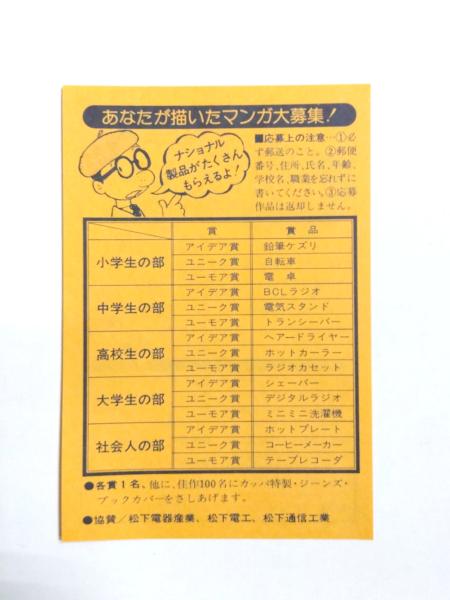 あなたが描いたマンガ大募集!
ナショナル
製品がたくさん
もらえるよ!
■応募上の注意…①必
ず郵送のこと。②郵便
番号、住所、氏名、年齢、
学校名、職業を忘れずに
書いてください。③応募
作品は返却しません。
賞 賞品
小学生の部
アイデア賞 鉛筆ケズリ
ユニーク賞 自転車
ユーモア賞 電卓
中学生の部
アイデア賞 BCLラジオ
ユニーク賞 電気スタンド
ユーモア賞 トランシーバー
高校生の部
アイデア賞 ヘアードライヤー
ユニーク賞 ホットカーラー
ユーモア賞 ラジオカセット
大学生の部
アイデア賞 シェーバー
ユニーク賞 デジタルラジオ
ユーモア賞 ミニミニ洗濯機
社会人の部
アイデア賞 ホットプレート
ユニーク賞 コーヒーメーカー
ユーモア賞 テープレコーダ
●各賞1名、他に、佳作100名にカッパ特製・ジーンズ・
ブックカバーをさしあげます。
●協賛/松下電器産業、松下電工、松下通信工業